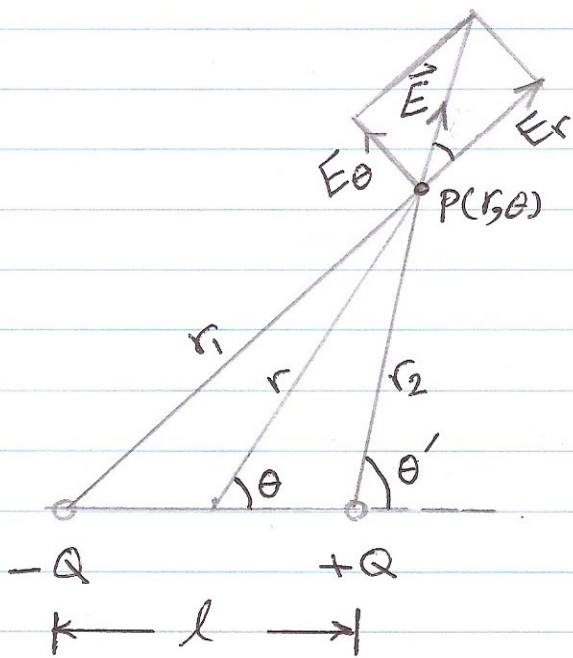 E⃗
Er
Eθ
P(r,θ)
r₁
r
r₂
θ
θ′
−Q
+Q
l